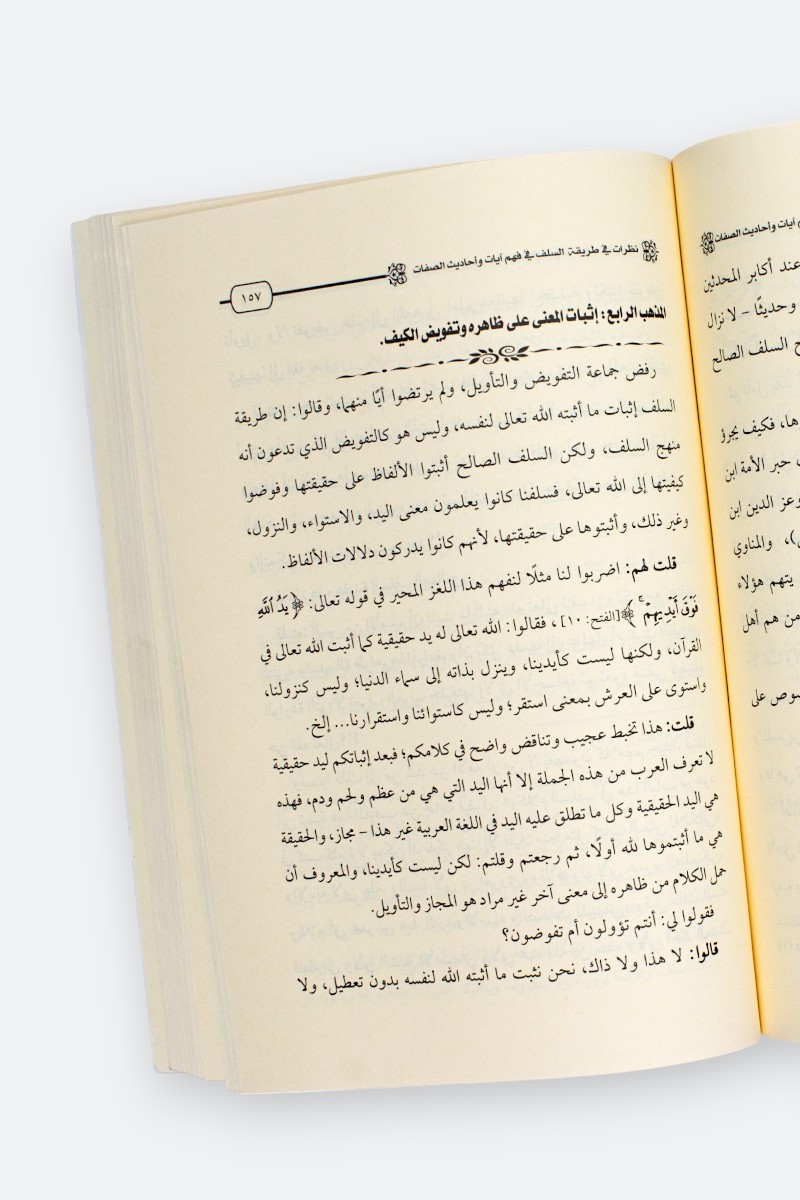 نظرات في طريقة السلف في فهم آيات وأحاديث الصفات
١٥٧
المذهب الرابع: إثبات المعنى على ظاهره وتفويض الكيف.
رفض جماعة التفويض والتأويل، ولم يرتضوا أيًا منهما، وقالوا: إن طريقة
السلف إثبات ما أثبته الله تعالى لنفسه، وليس هو كالتفويض الذي تدعون أنه
منهج السلف، ولكن السلف الصالح أثبتوا الألفاظ على حقيقتها وفوضوا
كيفيتها إلى الله تعالى، فسلفنا كانوا يعلمون معنى اليد، والاستواء، والنزول،
وغير ذلك، وأثبتوها على حقيقتها، لأنهم كانوا يدركون دلالات الألفاظ.
قلت لهم: اضربوا لنا مثلًا لنفهم هذا اللغز المحير في قوله تعالى: ﴿يَدُ ٱللَّهِ
فَوۡقَ أَيۡدِيهِمۡۚ﴾ [الفتح: ١٠]، فقالوا: الله تعالى له يد حقيقية كما أثبت الله تعالى في
القرآن، ولكنها ليست كأيدينا، وينزل بذاته إلى سماء الدنيا؛ وليس كنزولنا،
واستوى على العرش بمعنى استقر؛ وليس كاستوائنا واستقرارنا... إلخ.
قلت: هذا تخبط عجيب وتناقض واضح في كلامكم؛ فبعد إثباتكم ليد حقيقية
لا تعرف العرب من هذه الجملة إلا أنها اليد التي هي من عظم ولحم ودم، فهذه
هي اليد الحقيقية وكل ما تطلق عليه اليد في اللغة العربية غير هذا – مجاز، والحقيقة
هي ما أثبتموها لله أولًا، ثم رجعتم وقلتم: لكن ليست كأيدينا، والمعروف أن
حمل الكلام من ظاهره إلى معنى آخر غير مراد هو المجاز والتأويل.
فقولوا لي: أنتم تؤولون أم تفوضون؟
قالوا: لا هذا ولا ذاك، نحن نثبت ما أثبته الله لنفسه بدون تعطيل، ولا
آيات وأحاديث الصفات
عند أكابر المحدثين
وحديثًا – لا نزال
السلف الصالح
فكيف يجرؤ
حبر الأمة ابن
وعز الدين ابن
والمناوي
يتهم هؤلاء
من هم أهل
على